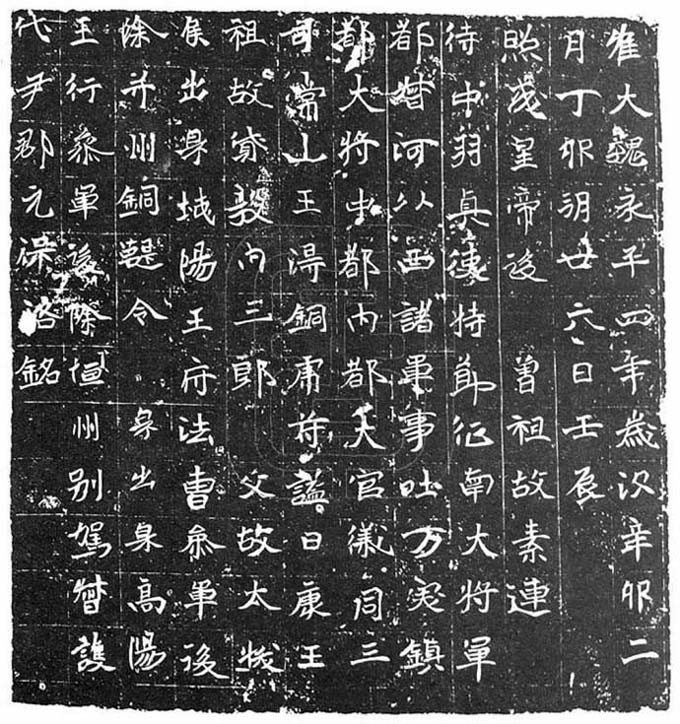 惟大魏永平四年歲次辛卯二
月丁卯朔廿六日壬辰
照成皇帝後　曾祖故素連
侍中羽真使持節征南大將軍
都督河以西諸軍事吐万突鎮
都大將中都內都大官儀同三
司常山王淂銅虎苻謚曰康王
祖故貸毅內三郎　父故太拔
侯出身城陽王府法曹參軍後
除并州銅鞮令　身出身高陽
王行參軍後除恒州別駕督護
代尹郡元保洛銘